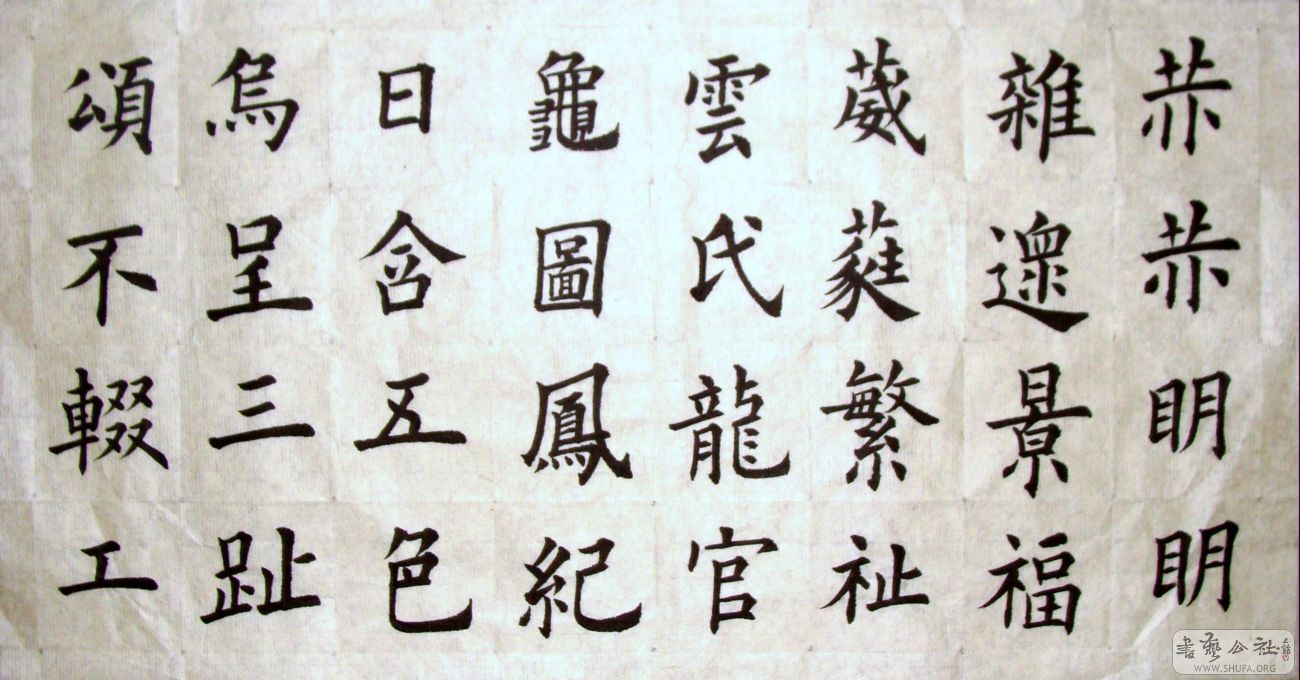 赫赫明明
雜遝景福
葳蕤繁祉
雲氏龍官
龜圖鳳紀
日含五色
烏呈三趾
頌不輟工
書藝公社
WWW.SHUFA.ORG